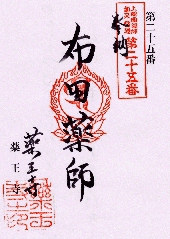 第二十五番
奉納
第二十五番
布田薬師
薬王寺
薬王寺